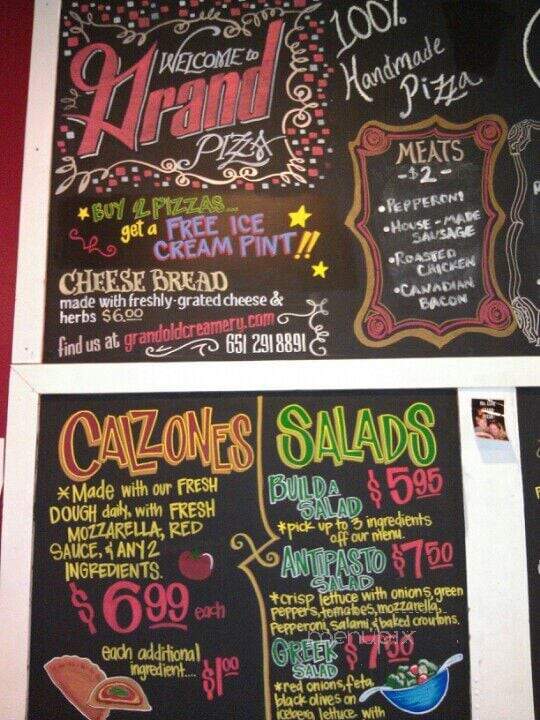 WELCOME to
Grand
PIZZA
100%
Handmade
Pizza
BUY 2 PIZZAS...
get a FREE ICE
CREAM PINT!!
CHEESE BREAD
made with freshly-grated cheese &
herbs $6.00
find us at grandoldcreamery.com
651 291 8891
MEATS
-$2-
•PEPPERONI
•HOUSE-MADE
SAUSAGE
•ROASTED
CHICKEN
•CANADIAN
BACON
CALZONES
*Made with our FRESH
DOUGH daily, with FRESH
MOZZARELLA, RED
SAUCE, & ANY 2
INGREDIENTS.
$6.99 each
each additional
ingredient.... $1.00
SALADS
BUILD A
SALAD
$5.95
*pick up to 3 ingredients
off our menu.
ANTIPASTO
SALAD
$7.50
*crisp lettuce with onions, green
peppers, tomatoes, mozzarella,
pepperoni, salami, & baked croutons.
menupix
GREEK
SALAD
*red onions, feta,
black olives on
iceberg lettuce with